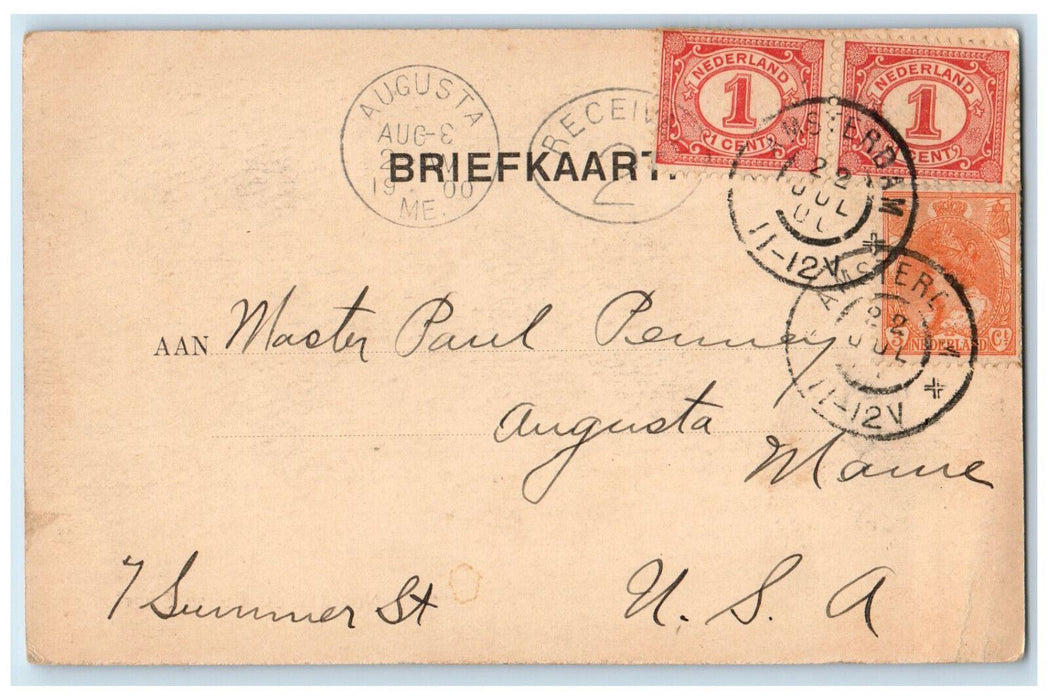 AUGUSTA
AUG-
19 00
ME.
RECEIV
2
BRIEFKAART.
NEDERLAND
1
1 CENT
NEDERLAND
1
CENT
AMSTERDAM
22
JUL
01
11-12V
AMSTER M
22
JUL
11-12V
3
NEDERLAND
Ct
AAN Master Paul Penney
Augusta
Maine
7 Summer St U. S. A